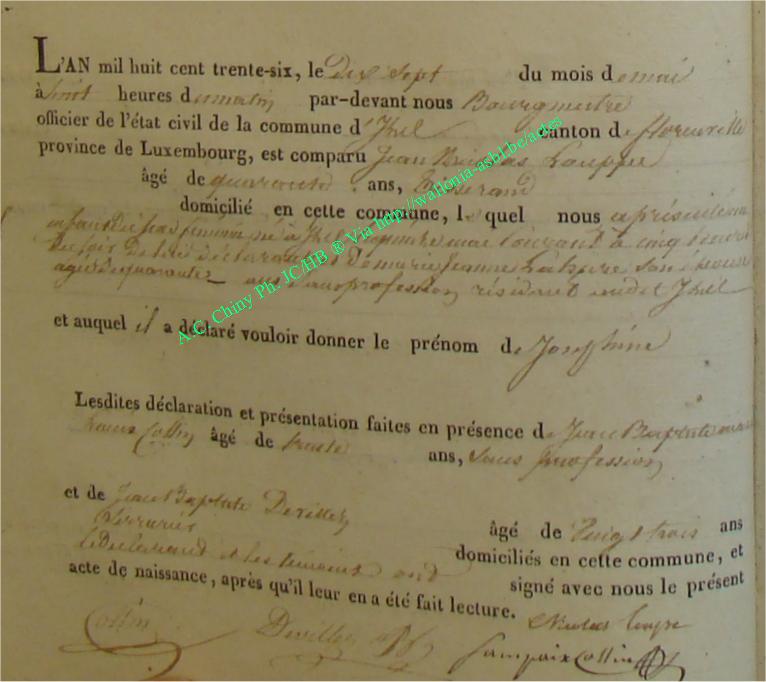 L'AN mil huit cent trente-six, le Dix sept du mois de mai
à huit heures du matin par-devant nous Bourgmestre
officier de l'état civil de la commune d'Izel canton de florenville
province de Luxembourg, est comparu Jean Nicolas Louppe
âgé de quarante ans, Tisserand
domicilié en cette commune, lequel nous a présenté un
enfant du sexe féminin né à Izel courant à cinq heures
du soir de lui déclarant et De marie Jeanne son épouse
agée de quarante ans sans profession résidant audit Izel
et auquel il a déclaré vouloir donner le prénom de Josephine
Lesdites déclaration et présentation faites en présence de Jean Baptiste
Collin âgé de trente ans, sans profession
et de Jean Baptiste Deviller âgé de vingt trois ans
Serrurier domiciliés en cette commune, et
le Declarant et les temoins ont signé avec nous le présent
acte de naissance, après qu'il leur en a été fait lecture.
Nicolas Loupe
Collin Deviller Collin
A.C. Chiny Ph. JC/HB ® Via http://wallonia-asbl.be/actes